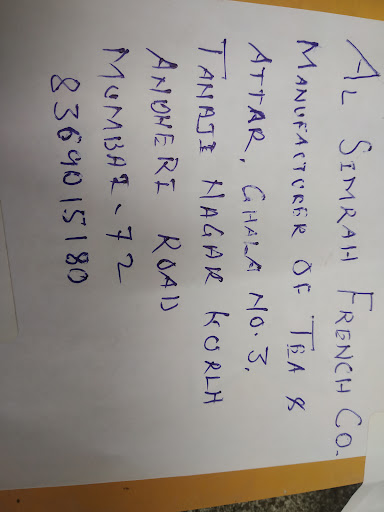 AL SIMRAH FRENCH CO.
MANUFACTURER OF TEA &
ATTAR, GHALA NO. 3,
TANAJI NAGAR KURLA
ANDHERI ROAD
MUMBAI - 72
8369015180